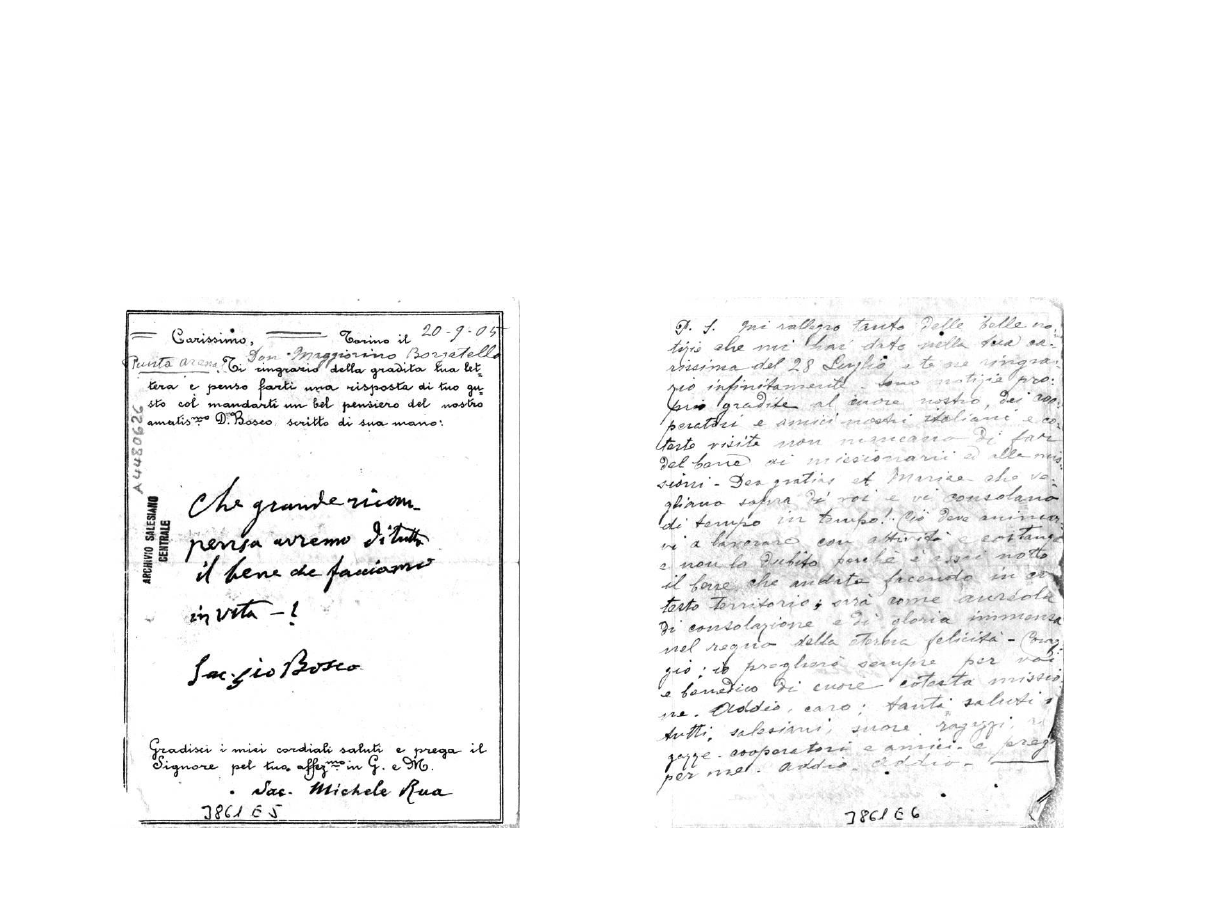 Carissimo, Torino il 20-9-05
Punta arenas Don Maggiorino Borgatello
Ti ringrazio della gradita tua let-
tera e penso farti una risposta di tuo gu-
sto col mandarti un bel pensiero del nostro
amatis.mo D. Bosco scritto di sua mano:
Che grande ricom_
pensa avremo di tutto
il bene che facciamo
in vita - !
Sac. Gio Bosco
Gradisci i miei cordiali saluti e prega il
Signore pel tuo affez.mo in G. e M.
Sac. Michele Rua
3861 E 5
A4480626
ARCHIVIO SALESIANO
CENTRALE
P. S. Mi rallegro tanto delle belle no-
tizie che mi hai dato nella tua ca-
rissima del 28 Luglio e te ne ringra-
zio infinitamente. Sono notizie pro-
prio gradite al cuore nostro, dei coo-
peratori e amici nostri italiani e co-
teste visite non mancano di far
del bene ai missionarii ed alle mis-
sioni - Deo gratias et Mariae che ve-
gliano sopra di voi e vi consolano
di tempo in tempo! Ciò deve animar-
vi a lavorare con attività e costanza
e non lo dubito perchè
il bene che andate facendo in co-
testo territorio; sarà come aureola
di consolazione e di gloria immensa
nel regno della eterna felicità - Corag-
gio; io pregherò sempre per voi
e benedico di cuore cotesta missio-
ne. Addio, caro; tanti saluti a
tutti, salesiani, suore ragazzi, ra-
gazze - cooperatori e amici - e prega
per me. Addio addio -
3861 E 6